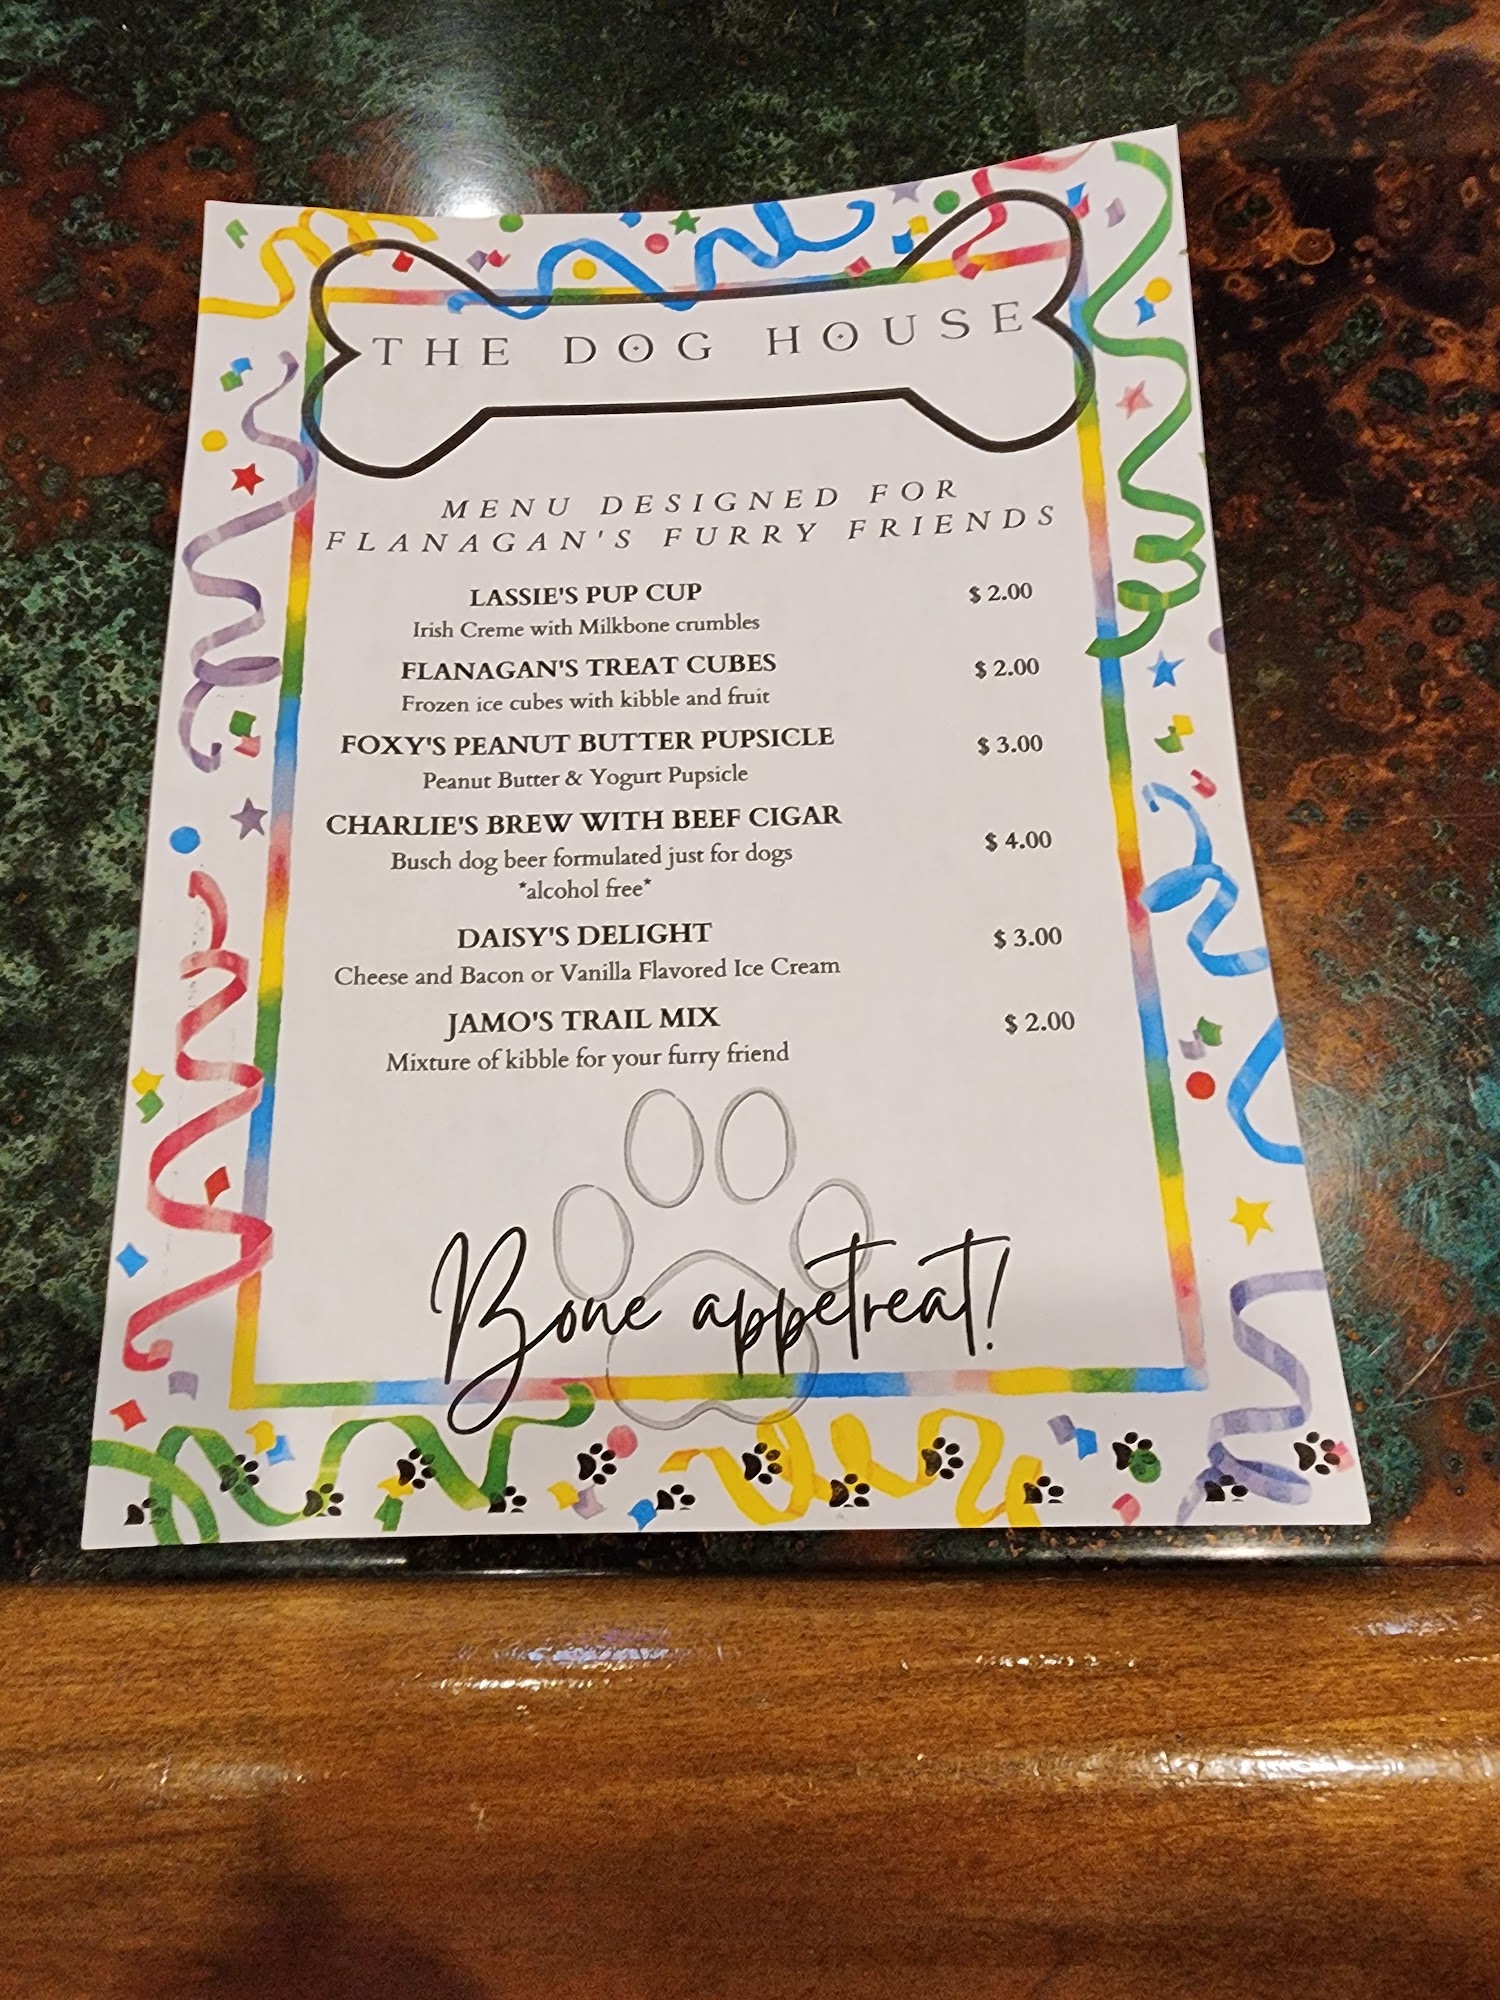 THE DOG HOUSE
MENU DESIGNED FOR
FLANAGAN'S FURRY FRIENDS
LASSIE'S PUP CUP $ 2.00
Irish Creme with Milkbone crumbles
FLANAGAN'S TREAT CUBES $ 2.00
Frozen ice cubes with kibble and fruit
FOXY'S PEANUT BUTTER PUPSICLE $ 3.00
Peanut Butter & Yogurt Pupsicle
CHARLIE'S BREW WITH BEEF CIGAR $ 4.00
Busch dog beer formulated just for dogs
*alcohol free*
DAISY'S DELIGHT $ 3.00
Cheese and Bacon or Vanilla Flavored Ice Cream
JAMO'S TRAIL MIX $ 2.00
Mixture of kibble for your furry friend
Bone appetreat!